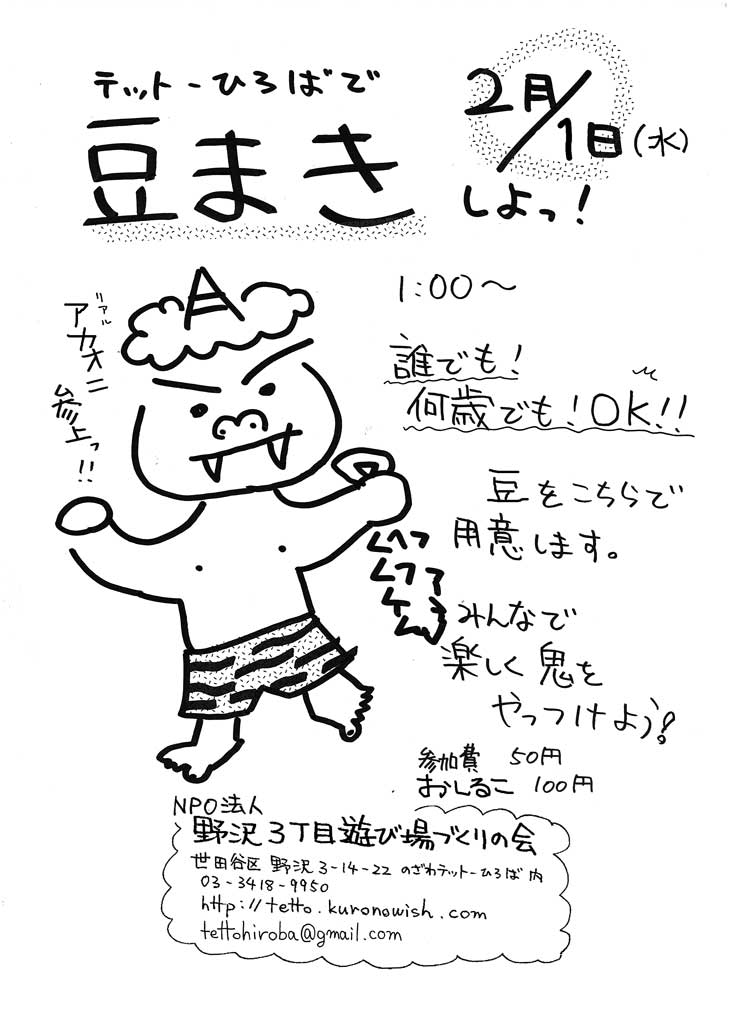 テットーひろばで
2月/1日(水)
豆まき
しよっ!
1:00〜
リアル
アカオニ
参上っ!!
誰でも!
何歳でも!OK!!
豆をこちらで
用意します。
みんなで
楽しく鬼を
やっつけよう!
参加費 50円
おしるこ 100円
NPO法人
野沢3丁目遊び場づくりの会
世田谷区 野沢3-14-22 のざわテットーひろば内
03-3418-9950
http://tetto.kuronowish.com
tettohiroba@gmail.com